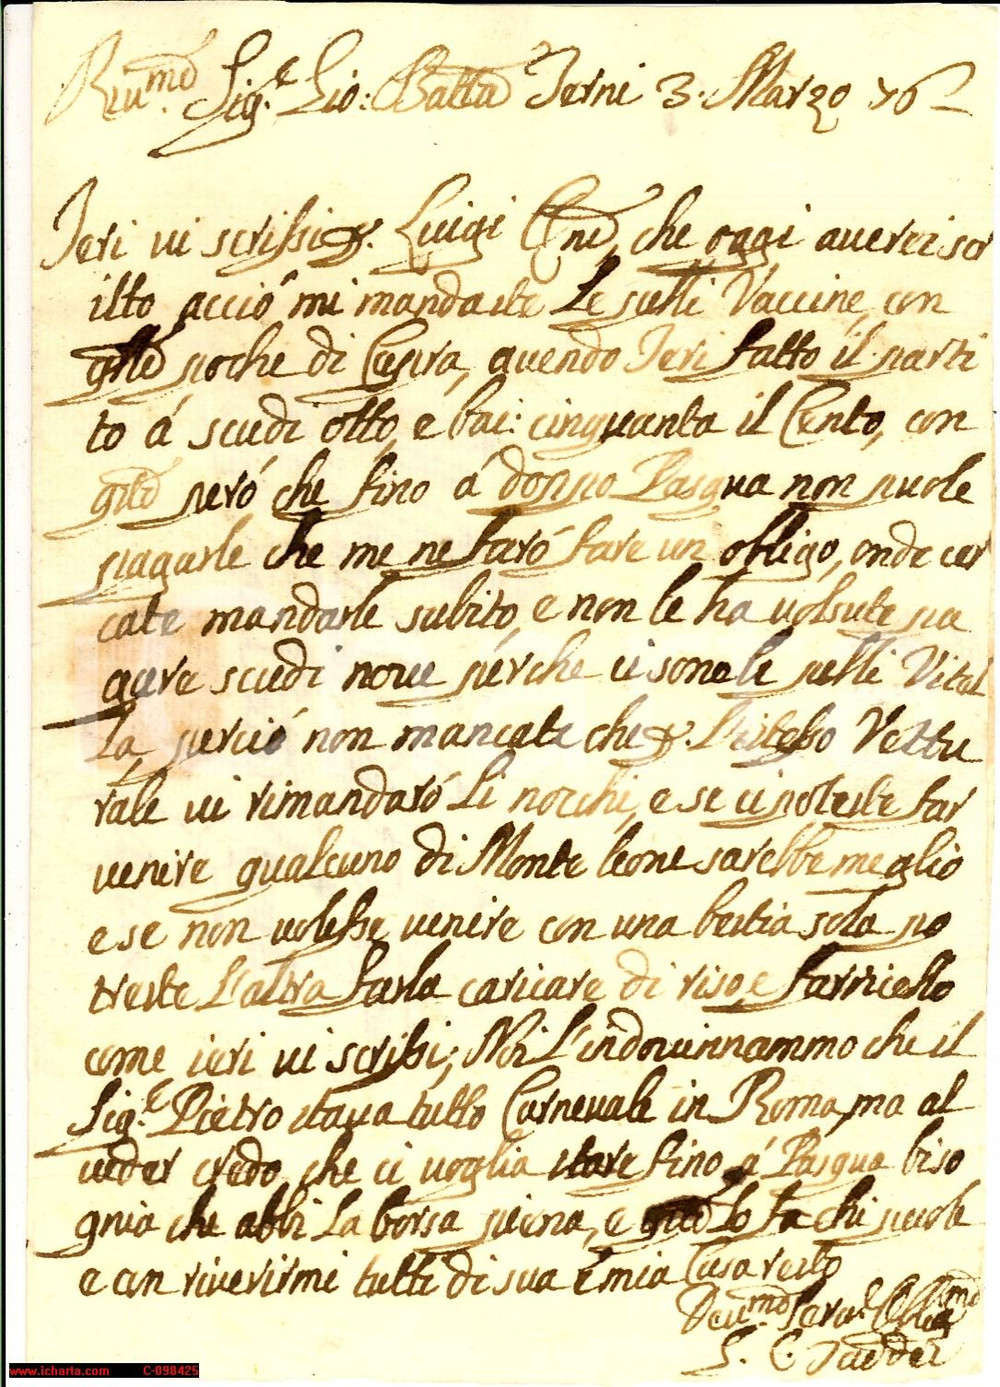 Riv.mo Sig.e Gio: Batta Terni 3. Marzo 76
Ieri vi scrissi Luigi che oggi averei scr
itto acció mi mandaste Le pelli Vaccine, con
poche di Capra, avendo Ieri fatto il parti
to á scudi otto, e bai: cinquanta il Cento, con
però che fino á doppo Pasqua non puole
pagarle che me ne faró fare un obligo, onde cer
cate mandarle subito, e non le ha volsute pa
gare scudi nove perche ci sono le pelli Vitel
la, perció non mancate che L'istesso Vettu
rale vi rimandaró Li nocchi, e se ci poteste far
venire qualcuno di Monte leone sarebbe meglio
e se non volesse venire con una bestia sola po
treste L'altra farla caricare di riso, e farricello
come ieri vi scrissi; Noi L'indovinnammo che il
Sig.e Pietro stava tutto Carnevale in Roma, ma al
veder credo che ci voglia stare fino á Pasqua biso
gnia che abbi La borsa piena, e lo fa chi puole
e con riverirmi tutti di sua e mia Casa resto
Dev.mo Serv.e Oblig.mo
Taddei
www.icharta.com C-098425